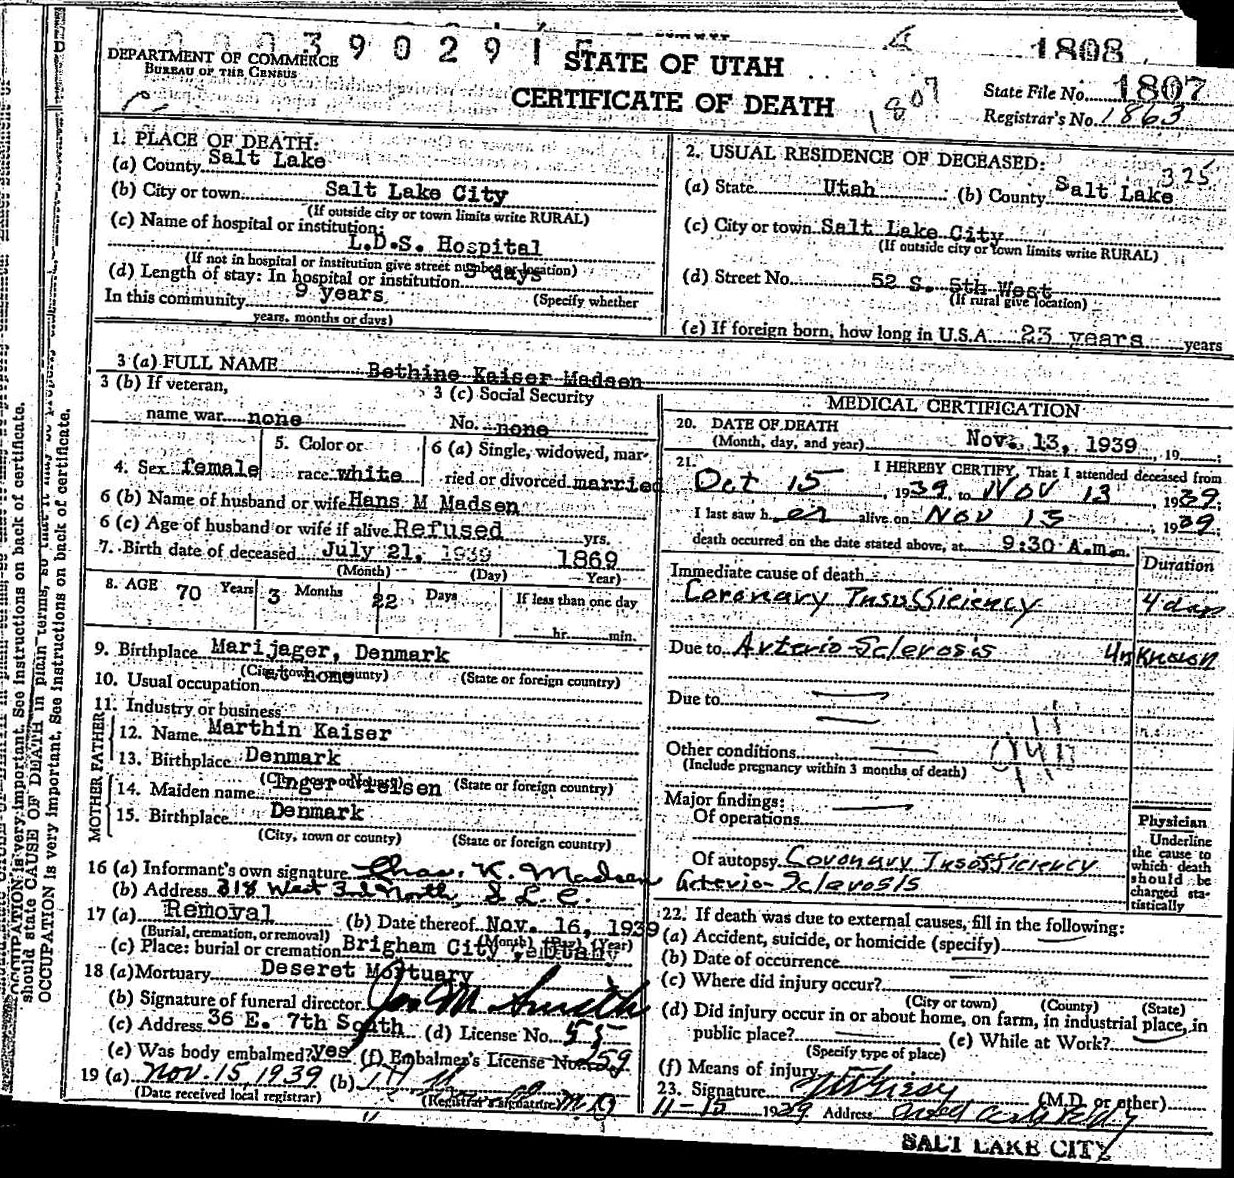 1808
DEPARTMENT OF COMMERCE
BUREAU OF THE CENSUS
STATE OF UTAH
CERTIFICATE OF DEATH
1807
State File No. 1807
Registrar's No. 1863
1. PLACE OF DEATH:
(a) County Salt Lake
(b) City or town Salt Lake City
(If outside city or town limits write RURAL)
(c) Name of hospital or institution:
L.D.S. Hospital
(If not in hospital or institution give street number or location)
(d) Length of stay: In hospital or institution 5 days
In this community 9 years (Specify whether
years, months or days)
2. USUAL RESIDENCE OF DECEASED:
325
(a) State Utah (b) County Salt Lake
(c) City or town Salt Lake City
(If outside city or town limits write RURAL)
(d) Street No. 52 S. 5th West
(If rural give location)
(e) If foreign born, how long in U.S.A. 23 years years
3 (a) FULL NAME Bethine Kaiser Madsen
3 (b) If veteran,
name war none
3 (c) Social Security
No. none
4. Sex female
5. Color or
race white
6 (a) Single, widowed, mar-
ried or divorced married
6 (b) Name of husband or wife Hans M Madsen
6 (c) Age of husband or wife if alive Refused yrs.
7. Birth date of deceased July 21, 1939 1869
(Month) (Day) Year)
8. AGE 70 Years 3 Months 22 Days If less than one day
hr. min.
9. Birthplace Marijager, Denmark
(City, town or county) (State or foreign country)
10. Usual occupation at home
11. Industry or business
FATHER
12. Name Marthin Kaiser
13. Birthplace Denmark
(City, town or county) (State or foreign country)
MOTHER
14. Maiden name Inger Nielsen
15. Birthplace Denmark
(City, town or county) (State or foreign country)
16 (a) Informant's own signature Chas. K. Madsen
(b) Address 318 West 3rd North, S L. C.
17 (a) Removal (b) Date thereof Nov. 16, 1939
(Burial, cremation, or removal) (Month) (Day) (Year)
(c) Place: burial or cremation Brigham City
18 (a) Mortuary Deseret Mortuary
(b) Signature of funeral director Jos M Smith
(c) Address 36 E. 7th South (d) License No. 55
(e) Was body embalmed? yes (f) Embalmer's License No. 259
19 (a) Nov. 15, 1939 (b)
(Date received local registrar) (Registrar's signature) M D
MEDICAL CERTIFICATION
20. DATE OF DEATH
(Month, day, and year) Nov. 13, 1939, 19
21. I HEREBY CERTIFY, That I attended deceased from
Oct 15, 1939, to Nov 13, 1939;
I last saw her alive on Nov 13, 1939;
death occurred on the date stated above, at 9:30 A.m.m.
Duration
Immediate cause of death
Coronary Insufficiency 4 days
Due to Arterio-Sclerosis Unknown
Due to
Other conditions
(Include pregnancy within 3 months of death)
Major findings:
Of operations
Of autopsy Coronary Insufficiency
Arterio-Sclerosis
Physician
Underline
the cause to
which death
should be
charged sta-
tistically
22. If death was due to external causes, fill in the following:
(a) Accident, suicide, or homicide (specify)
(b) Date of occurrence
(c) Where did injury occur?
(City or town) (County) (State)
(d) Did injury occur in or about home, on farm, in industrial place, in
public place? (e) While at Work?
(Specify type of place)
(f) Means of injury
23. Signature (M.D. or other)
11-15 1939 Address
SALT LAKE CITY
should state CAUSE OF DEATH in plain terms, so that it may be properly
OCCUPATION is very important. See instructions on back of certificate.